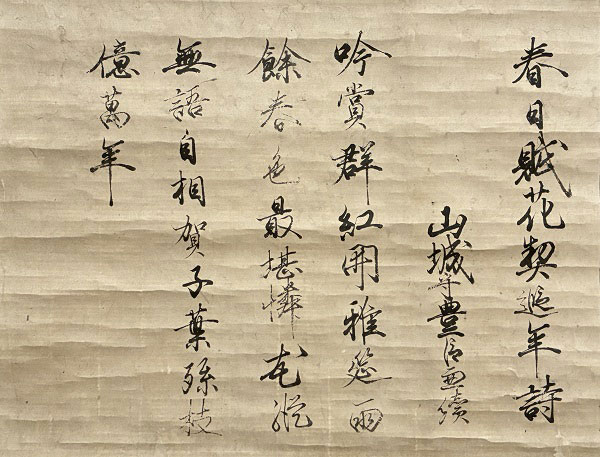 春日賦花契遐年詩
山城守豊信
吟賞群紅開雅筵雨
餘春色最堪憐花縱
無語自相賀子葉孫枝
億萬年